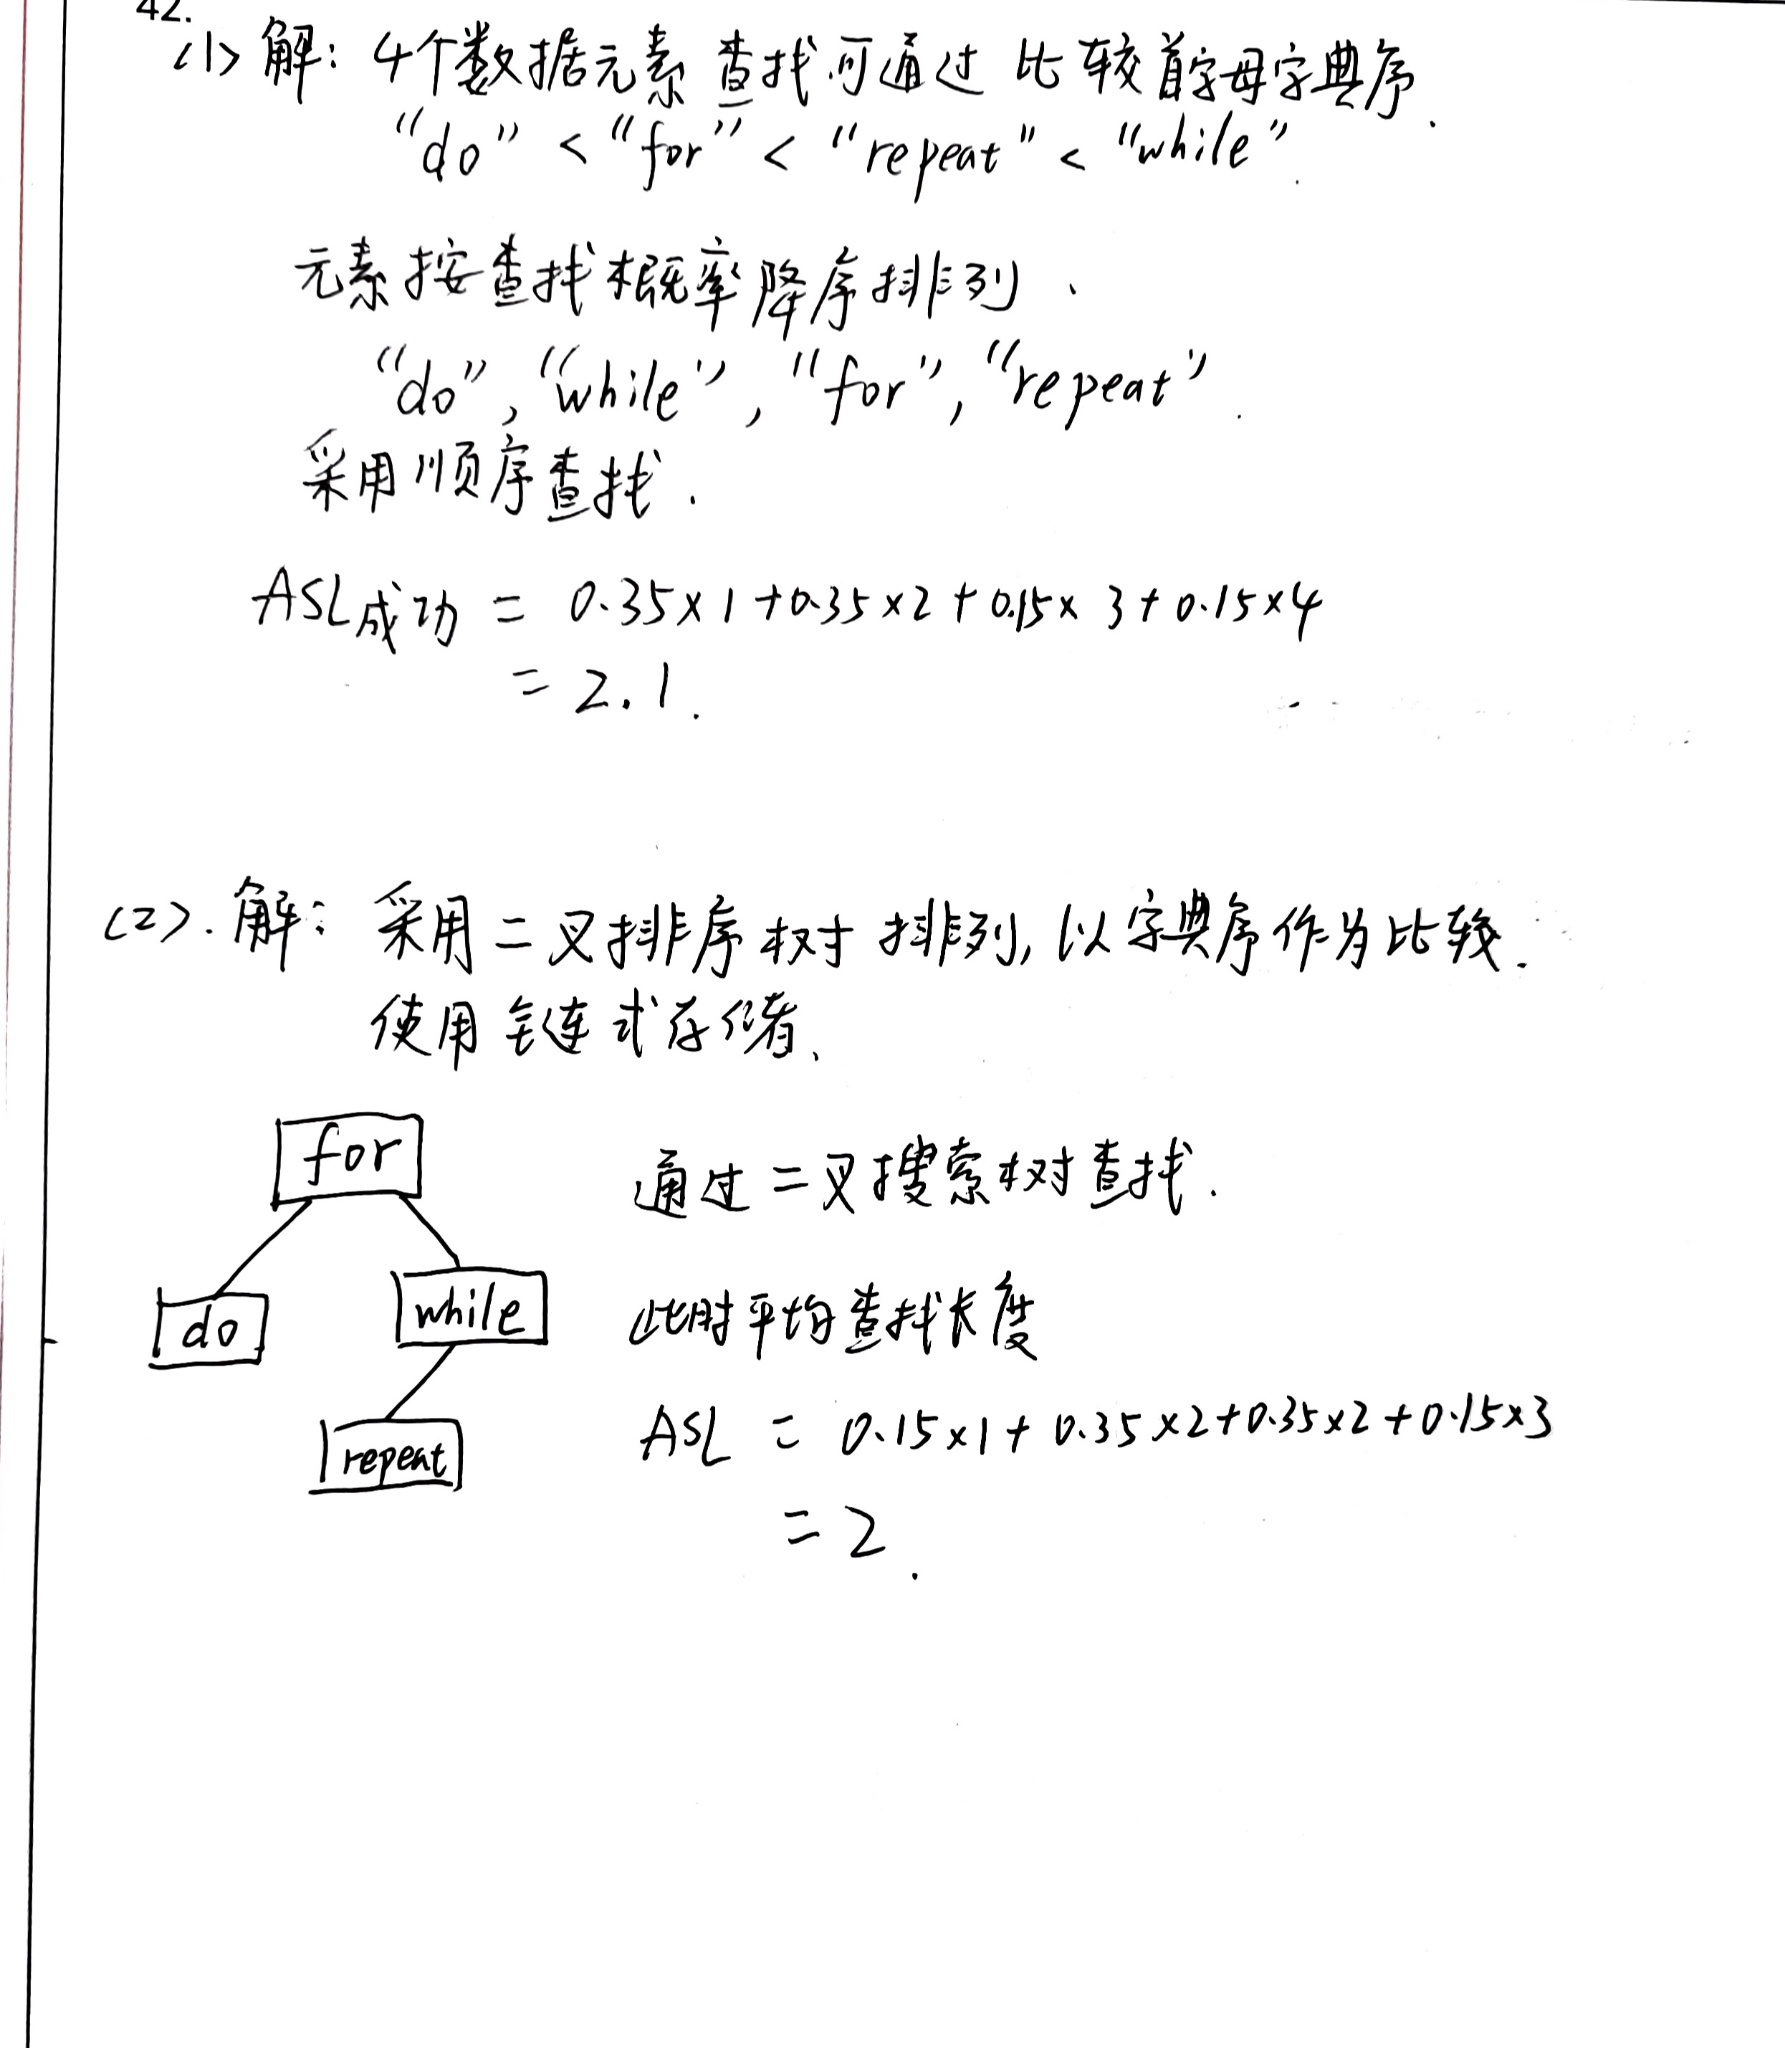 42.
(1) 解: 4个数据元素查找可通过比较首字母字典序.
"do" < "for" < "repeat" < "while".
元素按查找概率降序排列、
"do", "while", "for", "repeat".
采用顺序查找.
ASL成功 = 0.35×1+0.35×2+0.15×3+0.15×4
= 2.1.
(2). 解: 采用二叉排序树排列, 以字典序作为比较.
使用链式存储、
for
do
while
repeat
通过二叉搜索树查找.
此时平均查找长度
ASL = 0.15×1+0.35×2+0.35×2+0.15×3
= 2.